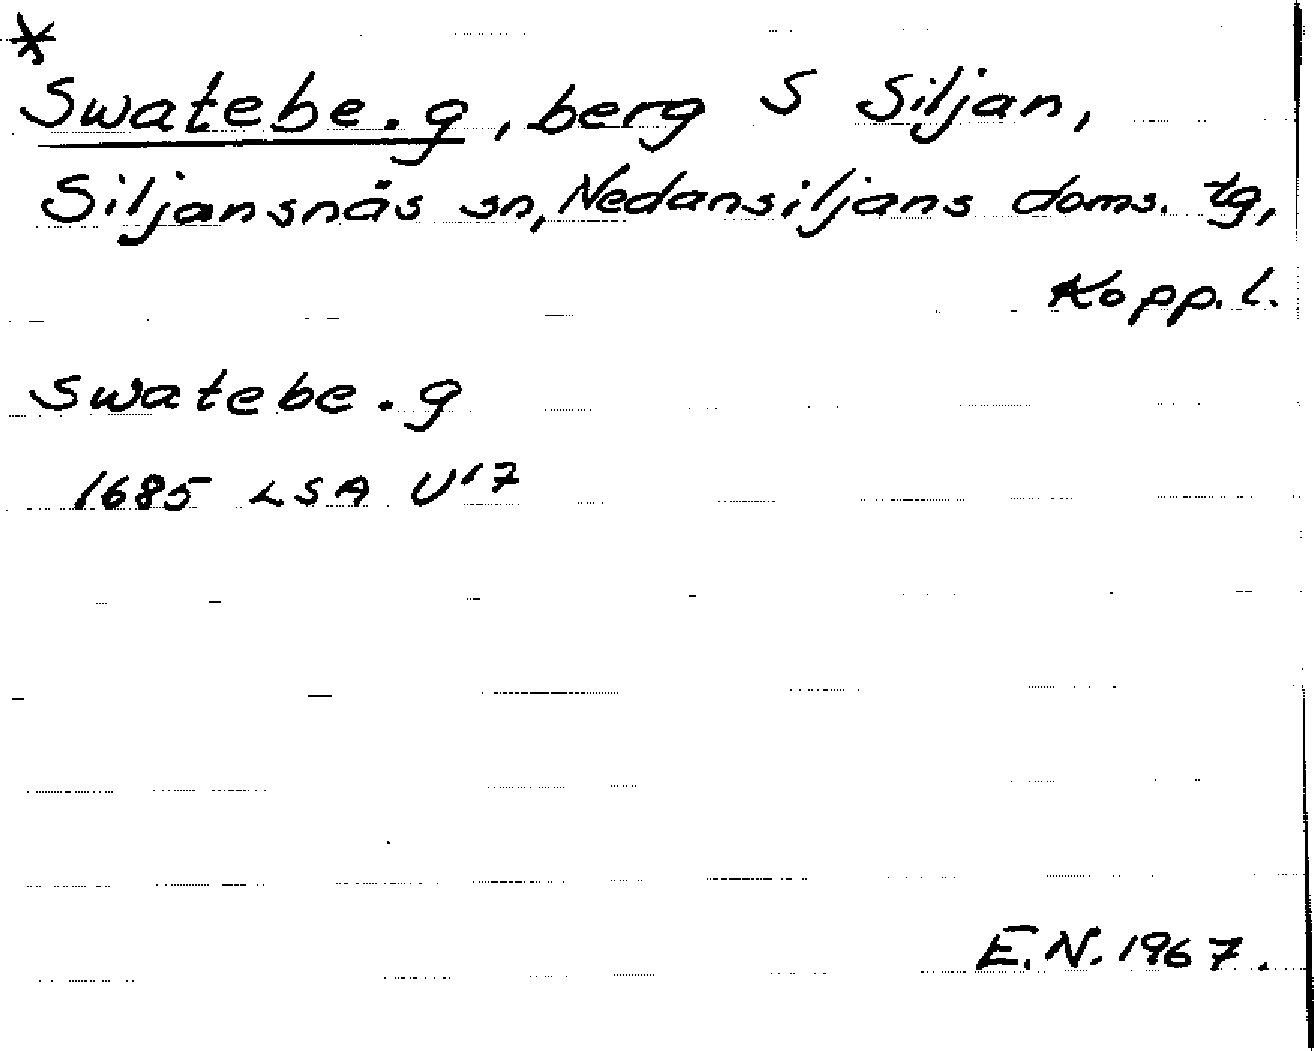 *
Swatebe.g, berg S Siljan,
Siljansnäs sn, Nedansiljans doms. tg,
Kopp. l.
Swatebe.g
1685 LSA U'7
E.N. 1967.